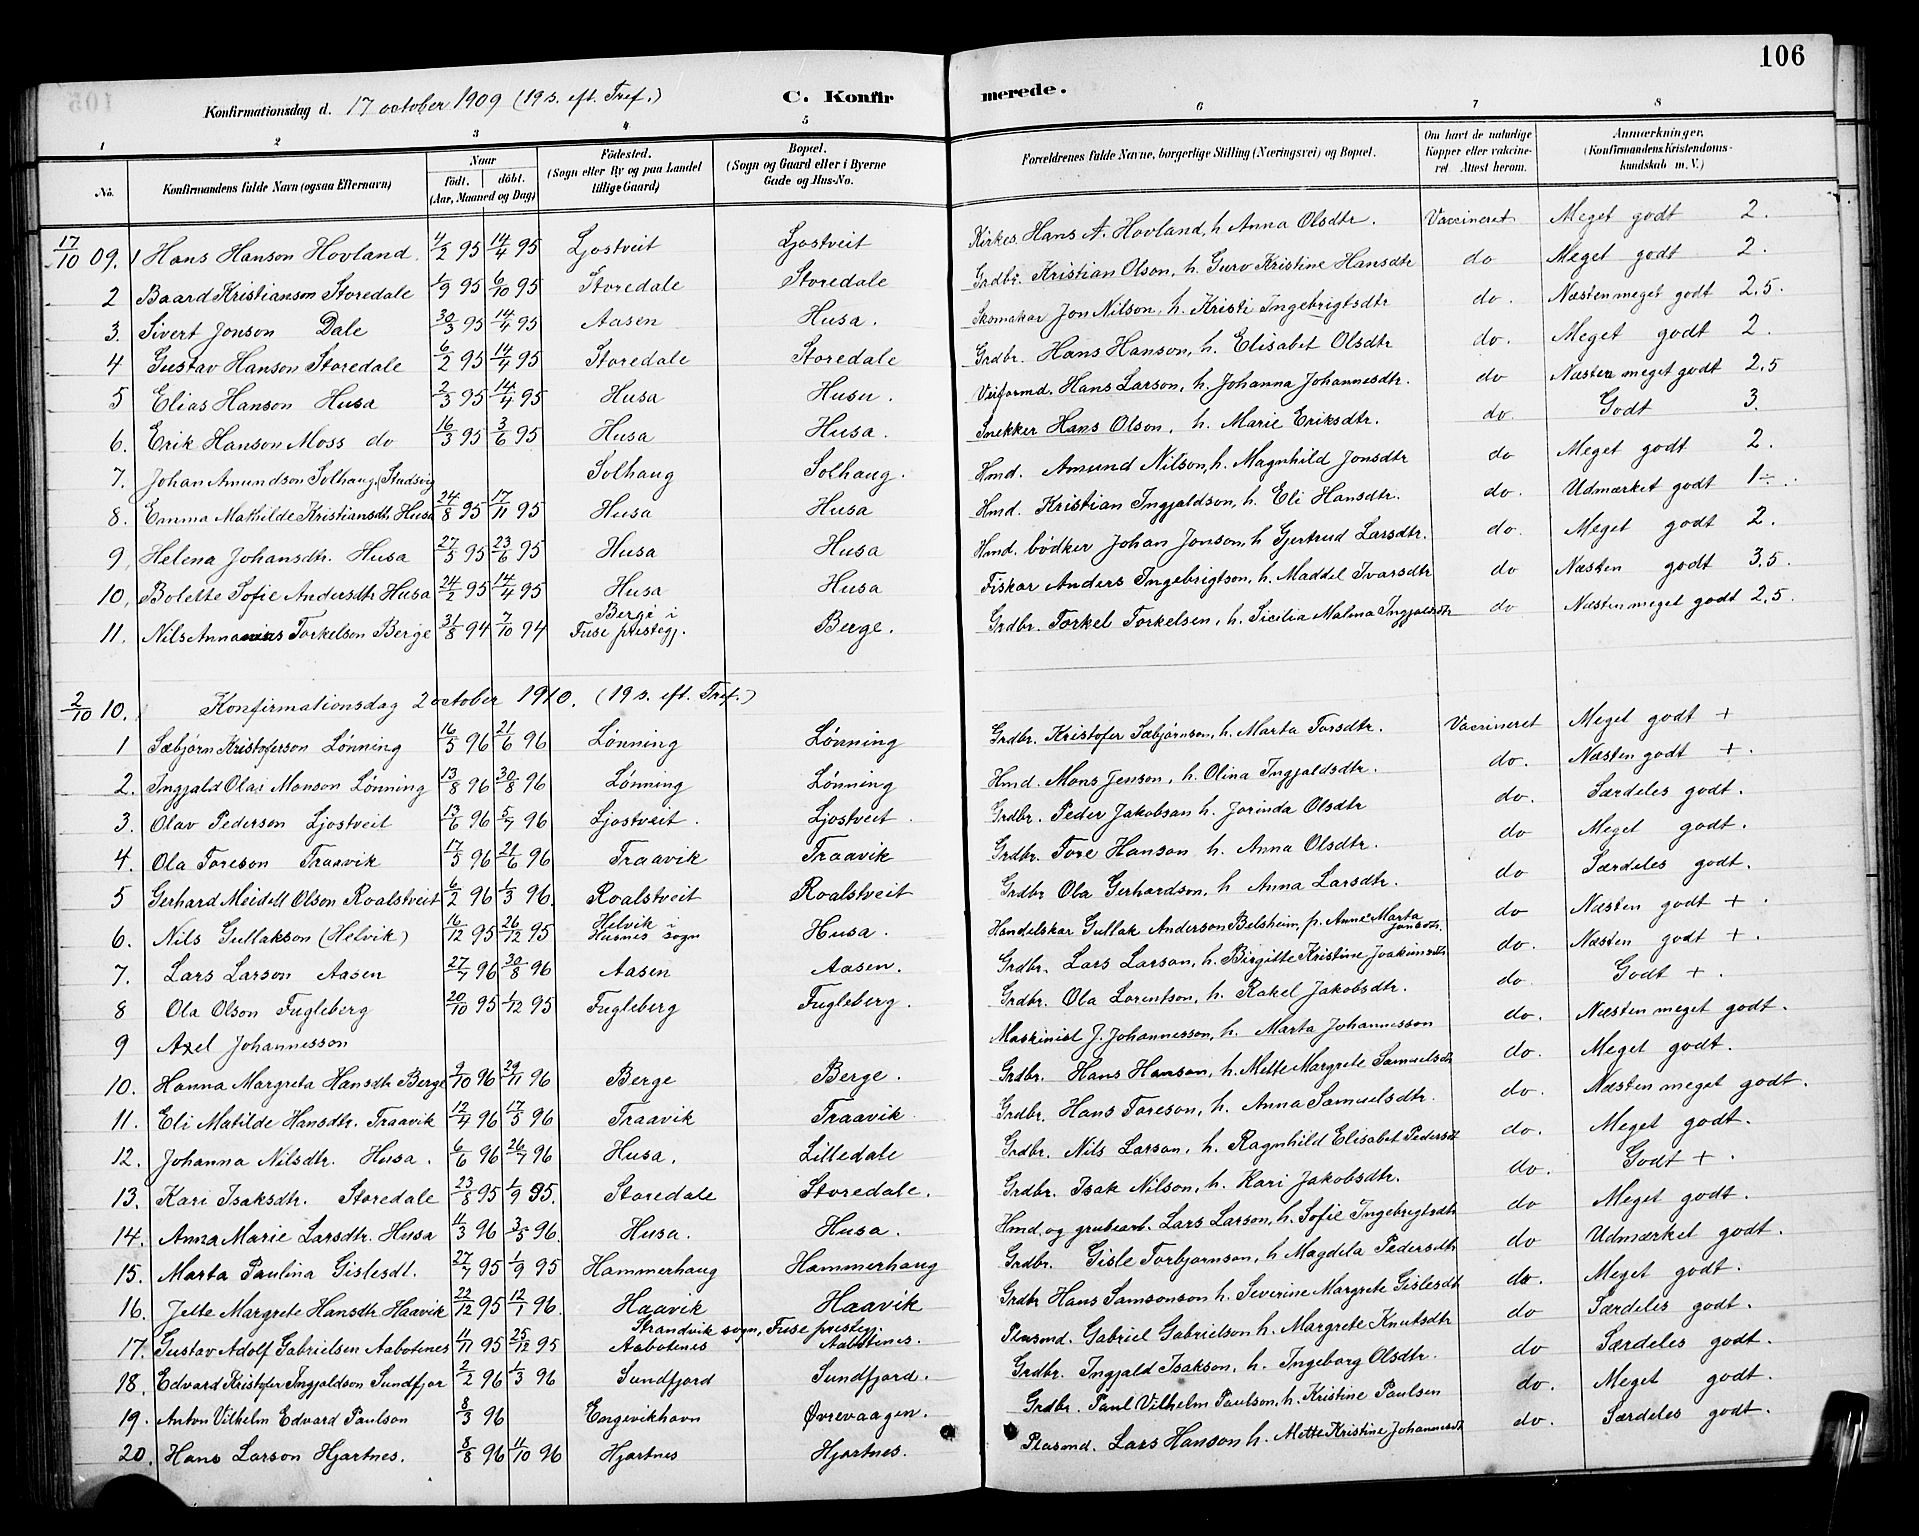 106
Konfirmationsdag d. 17 october 1909 (19 s. eft. Tref.) C. Konfirmerede.
1 2 3 4 5 6 7 8
No. Konfirmandens fulde Navn (ogsaa Efternavn) Naar født. døbt. (Aar, Maaned og Dag) Fødested. (Sogn eller By og paa Landet tillige Gaard) Bopæl. (Sogn og Gaard eller i Byerne Gade og Hus-No. Forældrenes fulde Navne, borgerlige Stilling (Næringsvei) og Bopæl. Om havt de naturlige Kopper eller vakcineret Attest herom. Anmærkninger. (Konfirmandens Kristendomskundskab m. V.)
17/10 09. 1 Hans Hanson Hovland. 4/2 95 14/4 95 Ljostveit Ljostveit Kirkes. Hans A. Hovland, h. Anna Olsdtr. Vaccineret Meget godt 2.
2 Baard Kristianson Storedale 1/9 95 6/10 95 Storedale Storedale Grdbr. Kristian Olson, h. Guro Kristine Hansdtr do Meget godt 2.
3. Sivert Jonson Dale 30/3 95 14/4 95 Aasen Husa. Skomakar Jon Nilson, h. Kristi Ingebrigtsdtr do. Næsten meget godt 2,5.
4 Gustav Hanson Storedale 6/2 95 14/4 95 Storedale Storedale Grdbr. Hans Hanson, h. Elisabet Olsdtr do. Meget godt 2.
5 Elias Hanson Husa 2/3 95 14/4 95 Husa Husa. Veiformd. Hans Larson, h. Johanna Johannesdtr. do Næsten meget godt 2,5
6. Erik Hanson Moss do 16/3 95 3/6 95 Husa Husa. Snekker Hans Olson, h. Marie Eriksdtr. do. Godt 3.
7. Johan Amundson Solhaug (Studsvig Solhaug Solhaug. Hmd. Amund Nilson, h. Magnhild Jonsdtr do Meget godt 2.
8. Emma Mathilde Kristiansdtr Husa 24/8 95 17/11 95 Husa Husa Hmd. Kristian Ingjaldson, h. Eli Hansdtr. do. Udmærket godt 1÷.
9 Helena Johansdtr. Husa 27/5 95 23/6 95 Husa Husa Hmd. bödker Johan Jonson, h Gjertrud Larsdtr. do Meget godt 2.
10. Bolette Sofie Andersdtr Husa 24/2 95 14/4 95 Husa Husa Fiskar Anders Ingebrigtson, h. Maddel Ivarsdtr do Næsten godt 3,5
11. Nils Annanias Torkelson Berge 31/8 94 7/10 94 Berge i Fuse prestegj. Berge. Grdbr. Torkel Torkelsen, h. Sicilia Malma Ingjaldsdtr do Næsten meget godt 2,5.
2/10 10. Konfirmationsdag 2 october 1910. (19 s. eft. Tref.)
1 Sæbjørn Kristoferson Lønning 16/5 96 21/6 96 Lønning Lønning Grdbr. Kristofer Sæbjørnson, h. Marta Tonsdtr. Vaccineret Meget godt +
2. Ingjald Olai Monson Lønning 13/8 96 30/8 96 Lønning Lønning Hmd. Mons Jenson, h. Olina Ingjaldsdtr. do. Næsten godt +.
3. Olav Pederson Ljostveit 13/6 96 5/7 96 Ljostveit. Ljostveit. Grdbr. Peder Jakobsan h. Jorinda Olsdtr do. Særdeles godt.
4. Ola Toreson Traavik 17/5 96 21/6 96 Traavik Traavik Grdbr. Tore Hanson h. Anna Olsdtr. do Meget godt.
5 Gerhard Meidell Olson Roalstveit 6/2 96 1/3 96. Roalstveit Roalstveit Grdbr Ola Gerhardson, h Anna Larsdtr. do Særdeles godt.
6. Nils Gullakson (Helvik) 16/12 95 26/12 95 Helvik i Husnes sogn Husa. Handelskar Gullak Anderson Belsheim, p. Anne Marta Jonsdtr. do Næsten godt +.
7. Lars Larson Aasen 27/7 96 30/8 96 Aasen Aasen. Grdbr. Lars Larson, h. Birgitte Kristine Joakimsdtr do. Næsten godt +.
8 Ola Olson Fugleberg 20/10 95 1/12 95 Fugleberg Fugleberg. Grdbr. Ola Lorentson, h. Rakel Jakobsdtr. do. Godt +.
9 Axel Johannesson Maskinist J. Johannesson, h. Marta Johannesson do. Næsten meget godt.
10. Hanna Margreta Hansdtr Berge 9/10 96 29/11 96 Berge Berge. Grdbr. Hans Hanson, h. Mette Margrete Samuelsdtr do. Meget godt.
11. Eli Matilde Hansdtr. Traavik 12/4 96 17/5 96 Traavik Traavik. Grdbr. Hans Toreson, h. Anna Samuelsdtr. do. Næsten meget godt.
12. Johanna Nilsdtr. Husa. 6/6 96 26/7 96 Husa. Lilledale Grdbr. Nils Larson, h. Ragnhild Elisabet Pedersdt do. Meget godt.
13. Kari Isaksdtr. Storedale 23/8 95 1/9 95. Storedale Storedale. Grdbr. Isak Nilson, h. Kari Jakobsdtr. do. Godt +.
14. Anna Marie Larsdtr. Husa 11/3 96 3/5 96. Husa. Husa. Hmd. og grubearb. Lars Larson, h. Sofie Ingebrigtsdtr do Meget godt.
15. Marta Paulina Gislesdt. 27/7 95 1/9 95 Hammerhaug Hammerhaug Grdbr. Gisle Torbjørnson, h Magdela Pedersdtr do Udmærket godt.
16. Jette Margrete Hansdtr Haavik 22/12 95 12/1 96. Haavik Haavik Grdbr Hans Samsonson h. Severine Margrete Gislesdt do. Meget godt.
17. Gustav Adolf Gabrielsen Aabotenes 11/11 95 25/12 95 Strandvik sogn, Fuse prestegj. Aabotenes Aabotenes. Plasmd. Gabriel Gabrielson h. Margrete Knutsdtr do Særdeles godt.
18. Edvard Kristofer Ingjaldson Sundfjor 2/2 96 1/3 96 Sundfjord Sundfjord. Grdbr. Ingjald Isakson, h. Ingeborg Olsdtr. do Særdeles godt.
19. Anton Vilhelm Edvard Paulson 8/3 96 Engevikhavn Øvrevaagen. Grdbr. Paul Vilhelm Paulson, h. Kristine Paulsen do. Meget godt.
20. Hans Larson Hjartnes. 8/8 96 11/10 96 Hjartnes Hjartnes. Plasmd. Lars Hanson h. Mette Kristine Johannesdt do. Særdeles godt.